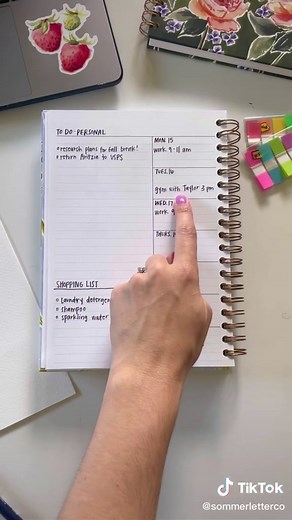 TO DO: PERSONAL
research plans for fall break!
return Aritzia to USPS
SHOPPING LIST
laundry deterge
shampoo
sparkling water
MON. 15
work 9-11 am
TUES. 16
gym with Taylor 3 pm
WED. 17
work
THURS.
TikTok
@sommerletterco